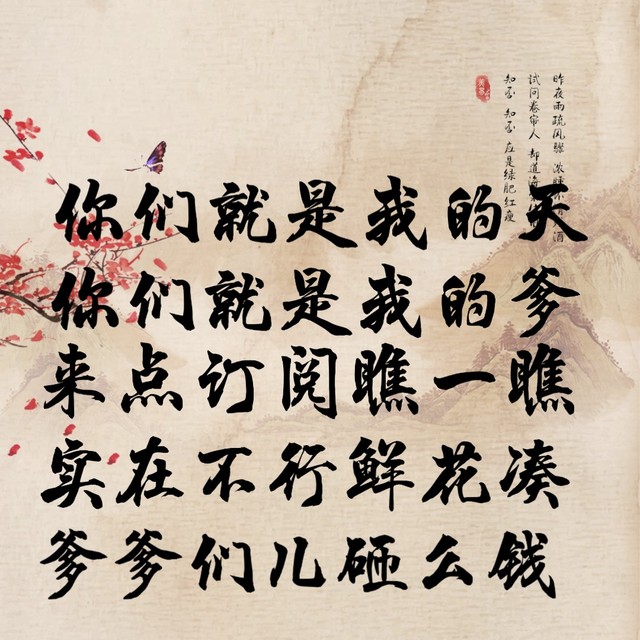 你们就是我的天
你们就是我的爹
来点订阅瞧一瞧
实在不行鲜花凑
爹爹们儿砸么钱
昨夜雨疏风骤 浓睡 酒
试问卷帘人 却道海
知否 知否 应是绿肥红瘦